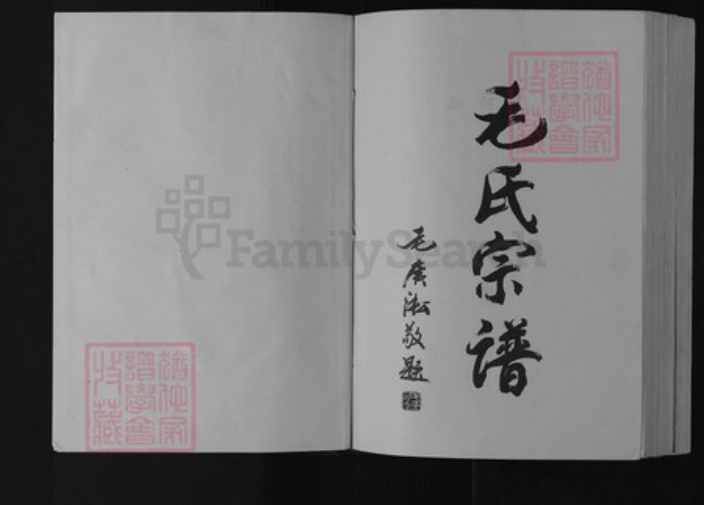 毛氏宗谱
毛广淞敬题
猶他家
譜學會
特藏
FamilySearch
猶他家
譜學會
特藏